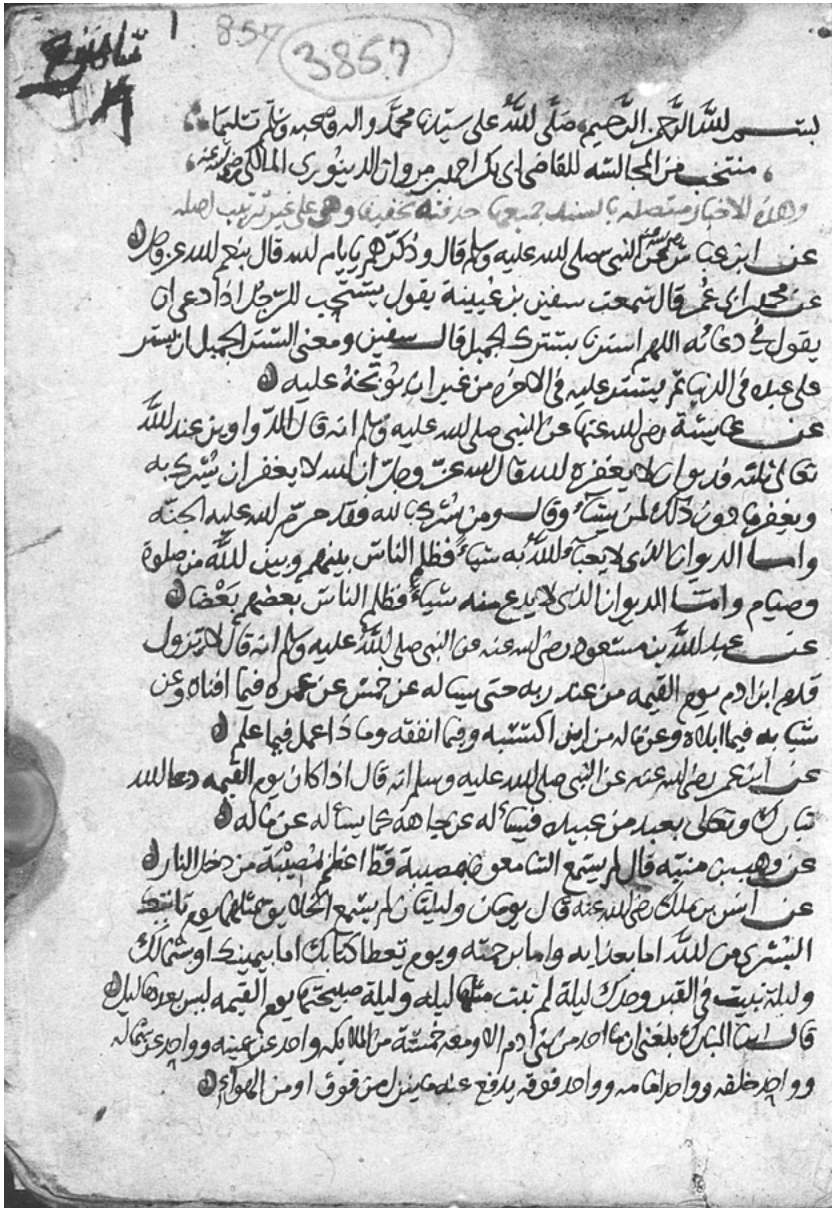 857
3857
بسم الله الرحمن الرحيم صلى الله على سيدنا محمد واله وصحبه وسلم تسليما
منتخب من المجالسه للقاضى ابى بكر احمد بن مروان الدينورى المالكى رضى الله عنه
وهذه الاخبار متصله بالسند جميعها حذفته تخفيفا وهى على غير ترتيب اصله
عن ابن عباس عن النبى صلى الله عليه وسلم قال وذكرهم بايام الله قال بنعم الله عز وجل
عن محمد بن ابى عمر قال سمعت سفين بن عيينة يقول يستحب للرجل اذا دعى ان
يقول فى دعائه اللهم استرنا بسترك الجميل قال سفين ومعنى الستر الجميل ان يستر
على عبده فى الدنيا ثم يستر عليه فى الاخره من غير ان يوبخه عليه
عن عايشة رضى الله عنها عن النبى صلى الله عليه وسلم انه قال الدواوين عند الله
تعالى ثلثه فديوان لا يغفره الله قال الله عز وجل ان الله لا يغفر ان يشرك به
ويغفر ما دون ذلك لمن يشاء وقال ومن يشرك بالله فقد حرم الله عليه الجنه
واما الديوان الذى لا يعبأ الله به شياء فظلم الناس بينهم وبين الله من صلوة
وصيام واما الديوان الذى لا يدع منه شياء فظلم الناس بعضهم بعضا
عن عبد الله بن مسعود رضى الله عنه عن النبى صلى الله عليه وسلم انه قال لا تزول
قدم ابن ادم يوم القيمه من عند ربه حتى يساله عن خمس عن عمره فيما افناه وعن
شبابه فيما ابلاه وعن ماله من اين اكتسبه وفيما انفقه وماذا عمل فيما علم
عن ابن عمر رضى الله عنه عن النبى صلى الله عليه وسلم انه قال اذا كان يوم القيمه دعا الله
تبارك وتعالى بعبد من عبيده فيسأله عن جاهه كما يسأله عن ماله
عن وهب بن منبه قال لم يسمع السامعون بمصيبة قط اعظم مصيبة من دخل النار
عن انس بن ملك رضى الله عنه قال يومان وليلتان لم يسمع الخلايق بمثلهما يوم تاتيك
البشرى من الله اما بعذابه واما برحمته ويوم تعطا كتابك اما بيمينك او شمالك
وليلة تبيت فى القبر وحدك ليلة لم تبت مثلها ليله وليلة صبيحتها يوم القيمه ليس بعدها ليل
قال ابن المبارك بلغنى ان ما احد من بنى ادم الا ومعه خمسة من الملايكه واحد عن يمينه وواحد عن شماله
وواحد خلفه وواحد امامه وواحد فوقه يدفع عنه ما ينزل من فوق او من الهواء